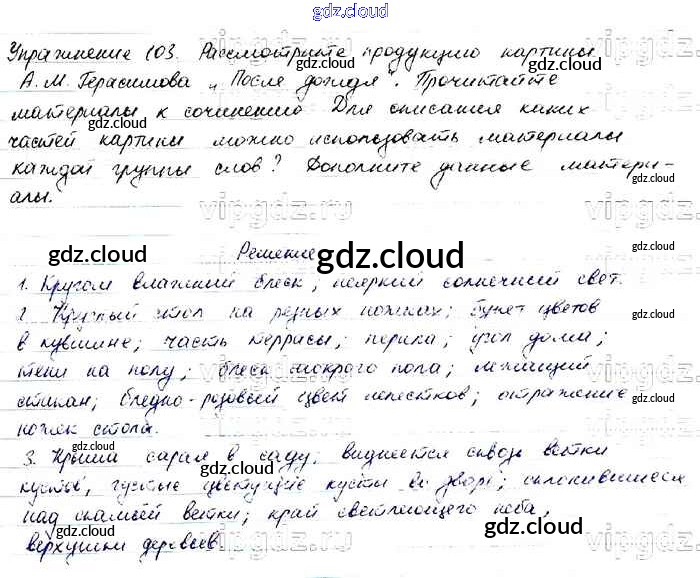 gdz.cloud
Упражнение 103. Рассмотрите продукцию картины
А. М. Герасимова „После дождя". Прочитайте
материалы к сочинению Для описания каких
частей картины можно использовать материалы
каждой группы слов? Дополните данные матери-
алы.
Решение
1. Кругом влажный блеск, неяркий солнечный свет.
2. Круглый стол на резных ножках; букет цветов
в кувшине; часть террасы; перила; угол дома;
тени на полу; блеск мокрого пола; лежащий
стакан; бледно-розовый цвет лепестков; отражение
ножек стола.
3. Крыша сарая в саду, виднеется сквозь ветки
кусты, густые цветущие кусты во дворе; склонившиеся
над скамьей ветки; край светлеющего неба,
верхушки деревьев
gdz.cloud
gdz.cloud
gdz.cloud
gdz.cloud
gdz.cloud
vipgdz.ru